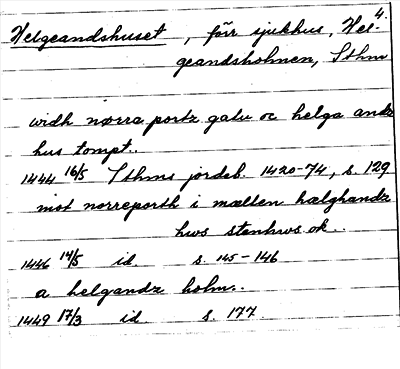 4.
Helgeandshuset, förr sjukhus, Hel-
geandsholmen, Sthm
widh nørra portz gatu oc helga andz
hus tompt..
1444 16/5 Sthms jordeb. 1420-74, s. 129
mot norreporth i mællen hælghandz
hws stenhws ok..
1446 14/5 id. s. 145-146
a helgandz holm..
1449 17/3 id. s. 177